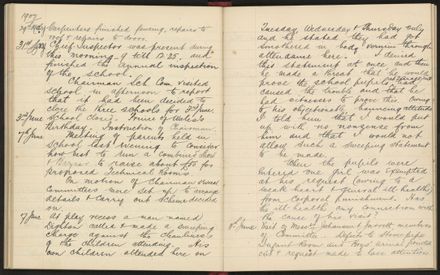 1907
29th May Carpenters finished fencing, repairs to
roof & repairs to door.
31st May Chief Inspector was present during
this morning 9 till 12.25. and
finished the annual inspection
of the school.
Chairman Sch Com visited
school in afternoon to report
that it had been decided to
close the three schools for 3rd June.
3rd June School closed. Prince of Wales's
Birthday. Instruction of Chairman.
7th June Meeting of parents held in
School last evening to consider
how best to run a combined Show
to raise about £75 for
proposed Technical Rooms
On motion of Chairman
Committee was set up to arrange
details & carry out scheme decided
on
7 June At play recess a man named
called & made a sweeping
charge against the cleanliness
of the children attending. His
own children attended here on
Tuesday Wednesday & Thursday only
and he stated they had got
smothered in body vermin through
attendance here. I denied
this statement at once and then
he made a threat that he would
prove the school pupils
caused the trouble and that he
had witnesses to prove this owing
to his objectionable humming attitude
I told him that I would put
up with no nonsense from
him and that I would not
allow such a sweeping statement
to be made.
When the pupils were
entered one girl was exempted
at his request owing to a
weak heart & general ill health
from corporal punishment. Has
the ill health any connection with
the cause of his visit?
8th June Visit of Messrs Johansen & Garrett, members
of Committee. Defects to Stove pipe
Infant Room and Boys' urinal pointed
out & request made to have attention